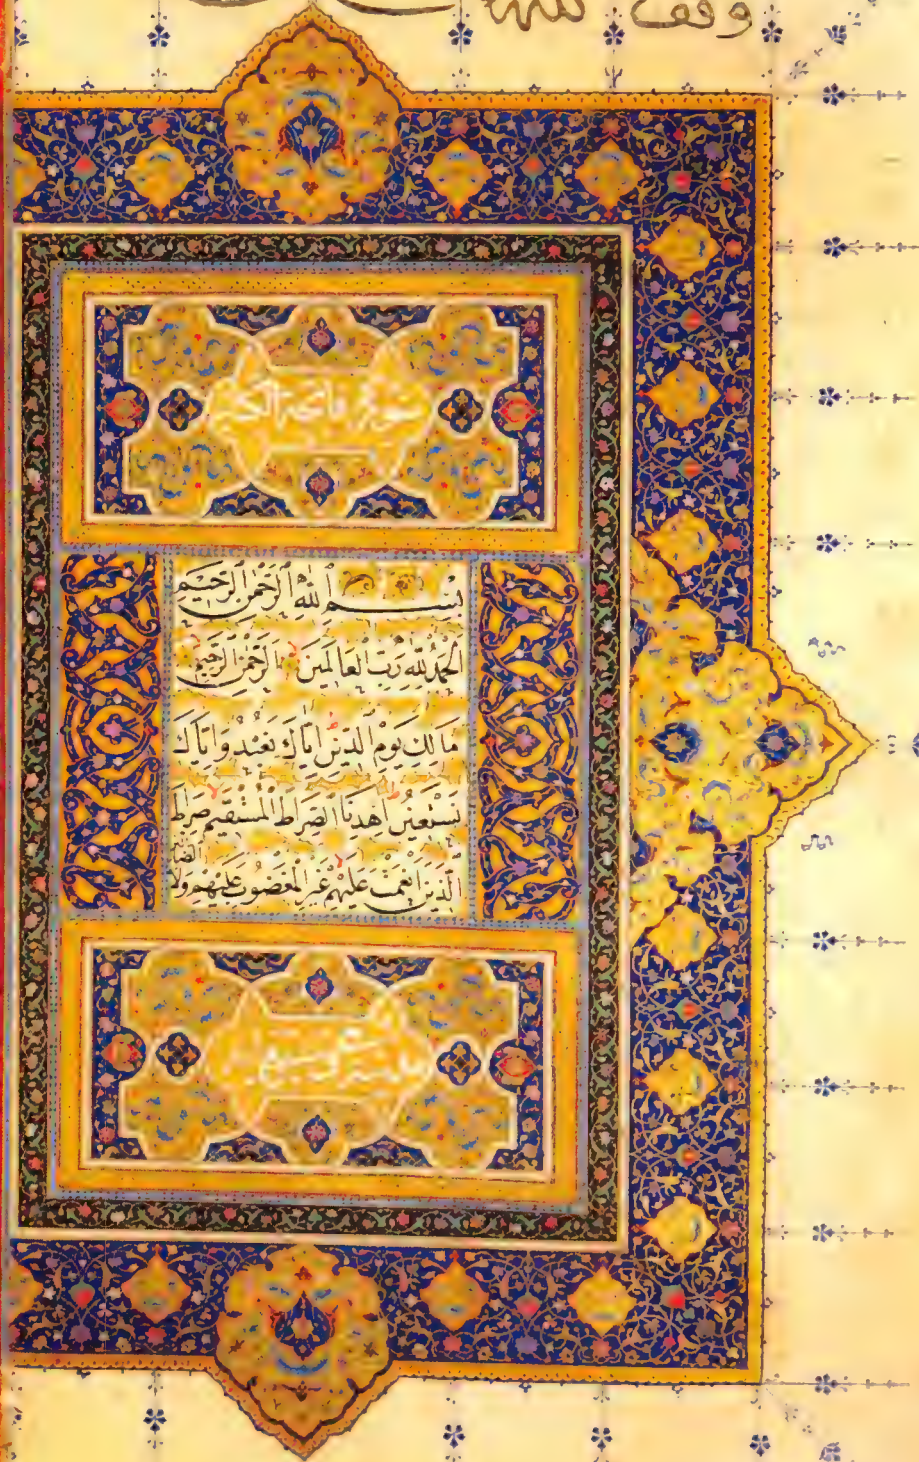 وقف لله
سورة فاتحة الكتاب
بِسْمِ اللهِ الرَّحْمٰنِ الرَّحِيمِ
الْحَمْدُ لِلّٰهِ رَبِّ الْعَالَمِينَ الرَّحْمٰنِ الرَّحِيمِ
مَالِكِ يَوْمِ الدِّينِ اِيَّاكَ نَعْبُدُ وَاِيَّاكَ
نَسْتَعِينُ اِهْدِنَا الصِّرَاطَ الْمُسْتَقِيمَ صِرَاطَ
الَّذِينَ اَنْعَمْتَ عَلَيْهِمْ غَيْرِ الْمَغْضُوبِ عَلَيْهِمْ وَلَا
الضَّا